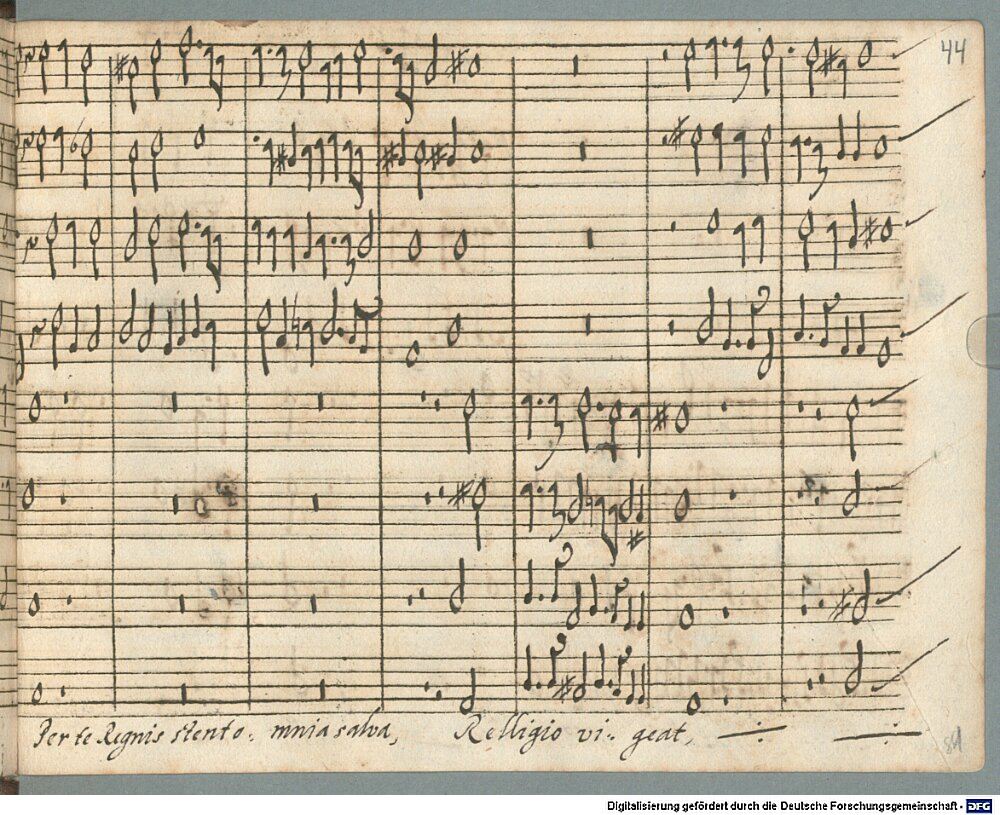 44
Per te Regnis stent o: mnia salva, Relligio vi: geat,
84
Digitalisierung gefördert durch die Deutsche Forschungsgemeinschaft - DFG